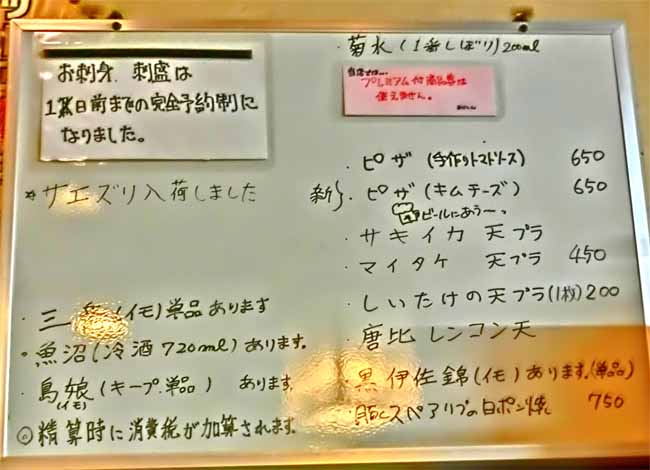 お刺身、刺盛は
1営業日前までの完全予約制に
なりました。
*サエズリ入荷しました
・三岳(イモ)単品あります
・魚沼(冷酒720ml)あります。
・島娘(キープ.単品) あります.
(イモ)
◎精算時に消費税が加算されます。
・菊水(1番しぼり)200ml
当店では…
プレミアム付商品券は
使えません。
・ピザ(手作りトマトソース) 650
新}・ピザ(キムチーズ) 650
ビールにあう〜っ
・サキイカ 天プラ
・マイタケ 天プラ 450
・しいたけの天プラ(1枚)200
・唐比レンコン天
・黒伊佐錦(イモ)あります.(単品)
・豚スペアリブの白ポン焼 750